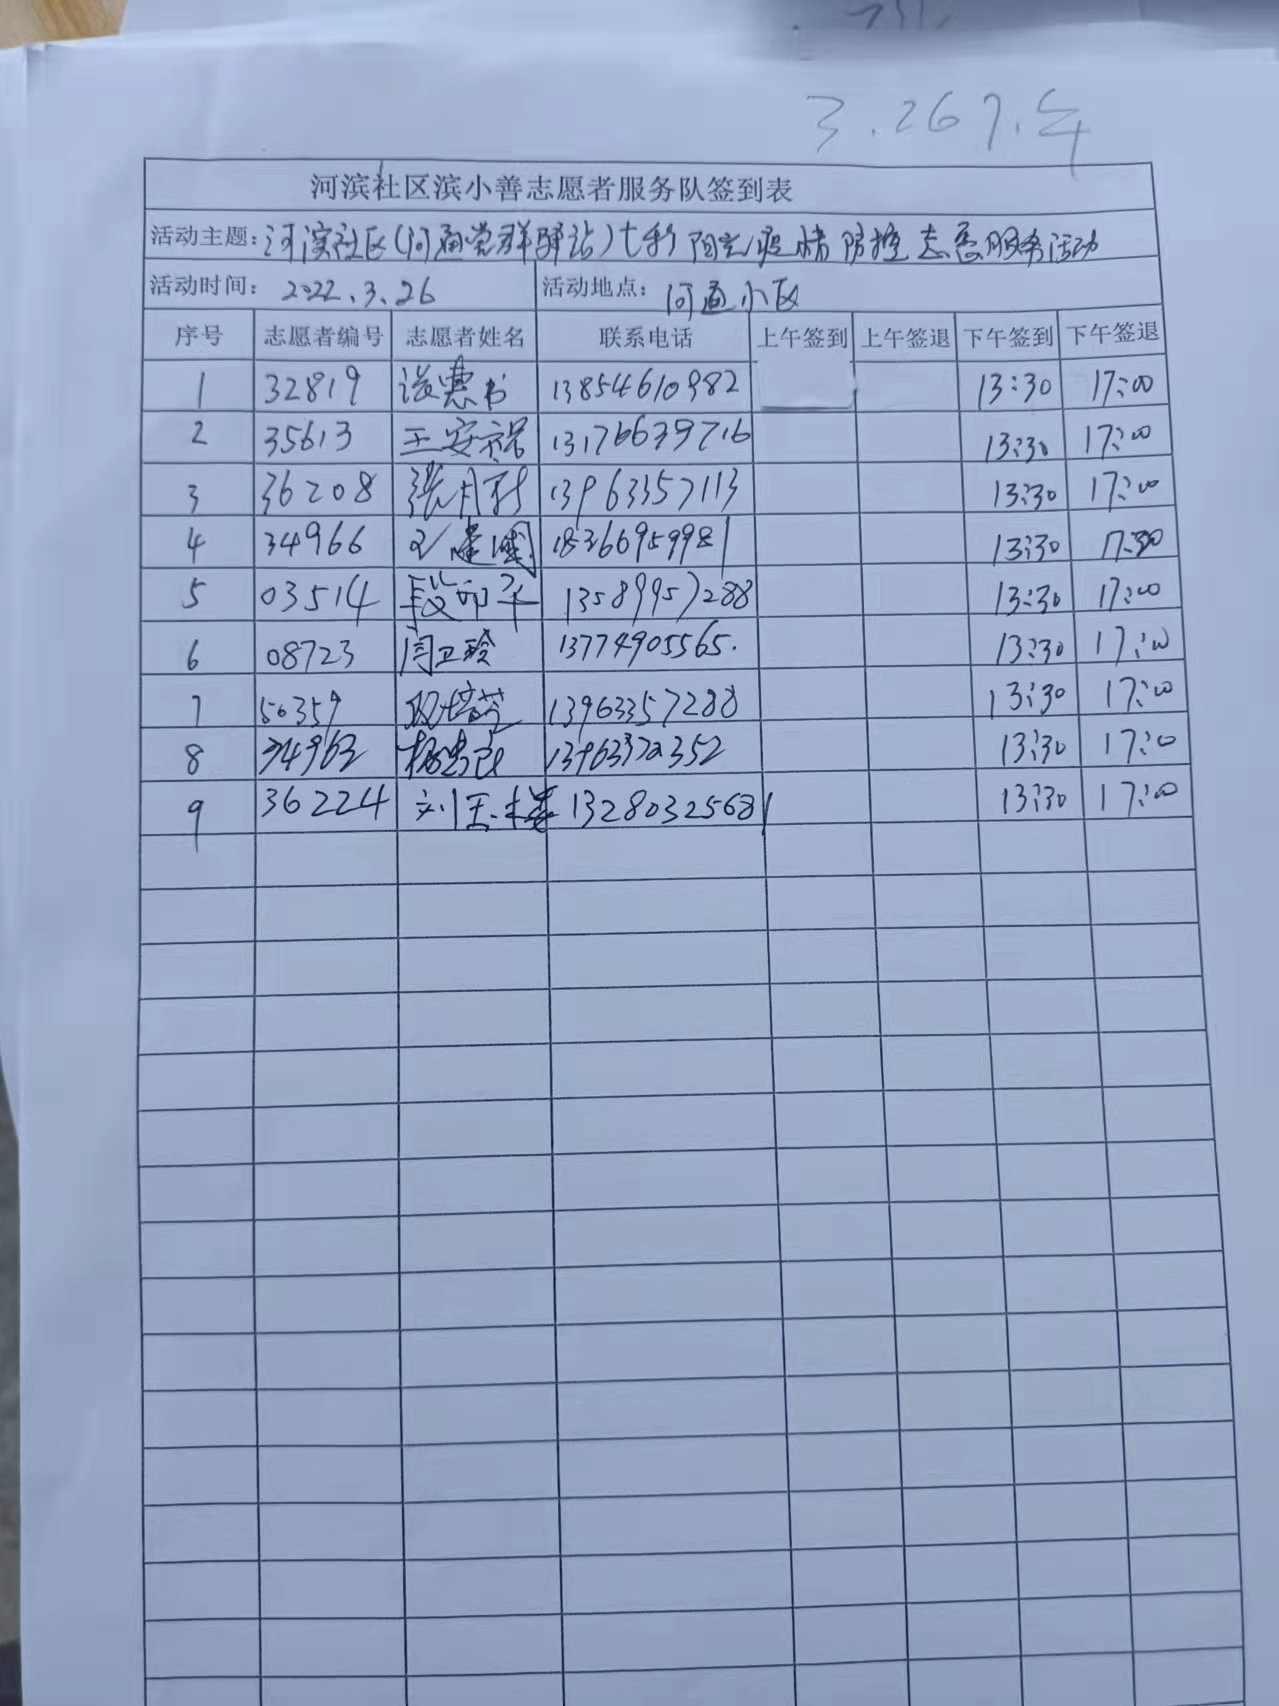 3.26下午
河滨社区滨小善志愿者服务队签到表
活动主题:河滨社区(河通党群驿站)七彩阳光疫情防控志愿服务活动
活动时间: 2022.3.26 活动地点: 河通小区
序号 志愿者编号 志愿者姓名 联系电话 上午签到 上午签退 下午签到 下午签退
1 32819 13854610982 13:30 17:00
2 35613 王安 13176639716 13:30 17:00
3 36208 张月新 13963357113 13:30 17:00
4 34966 建国 18366959981 13:30 17:30
5 03514 段印平 13589957288 13:30 17:00
6 08723 闫卫玲 13774905565. 13:30 17:00
7 50359 培芝 13963357288 13:30 17:00
8 34963 13:30 17:00
9 36224 刘玉梅 13280325681 13:30 17:00